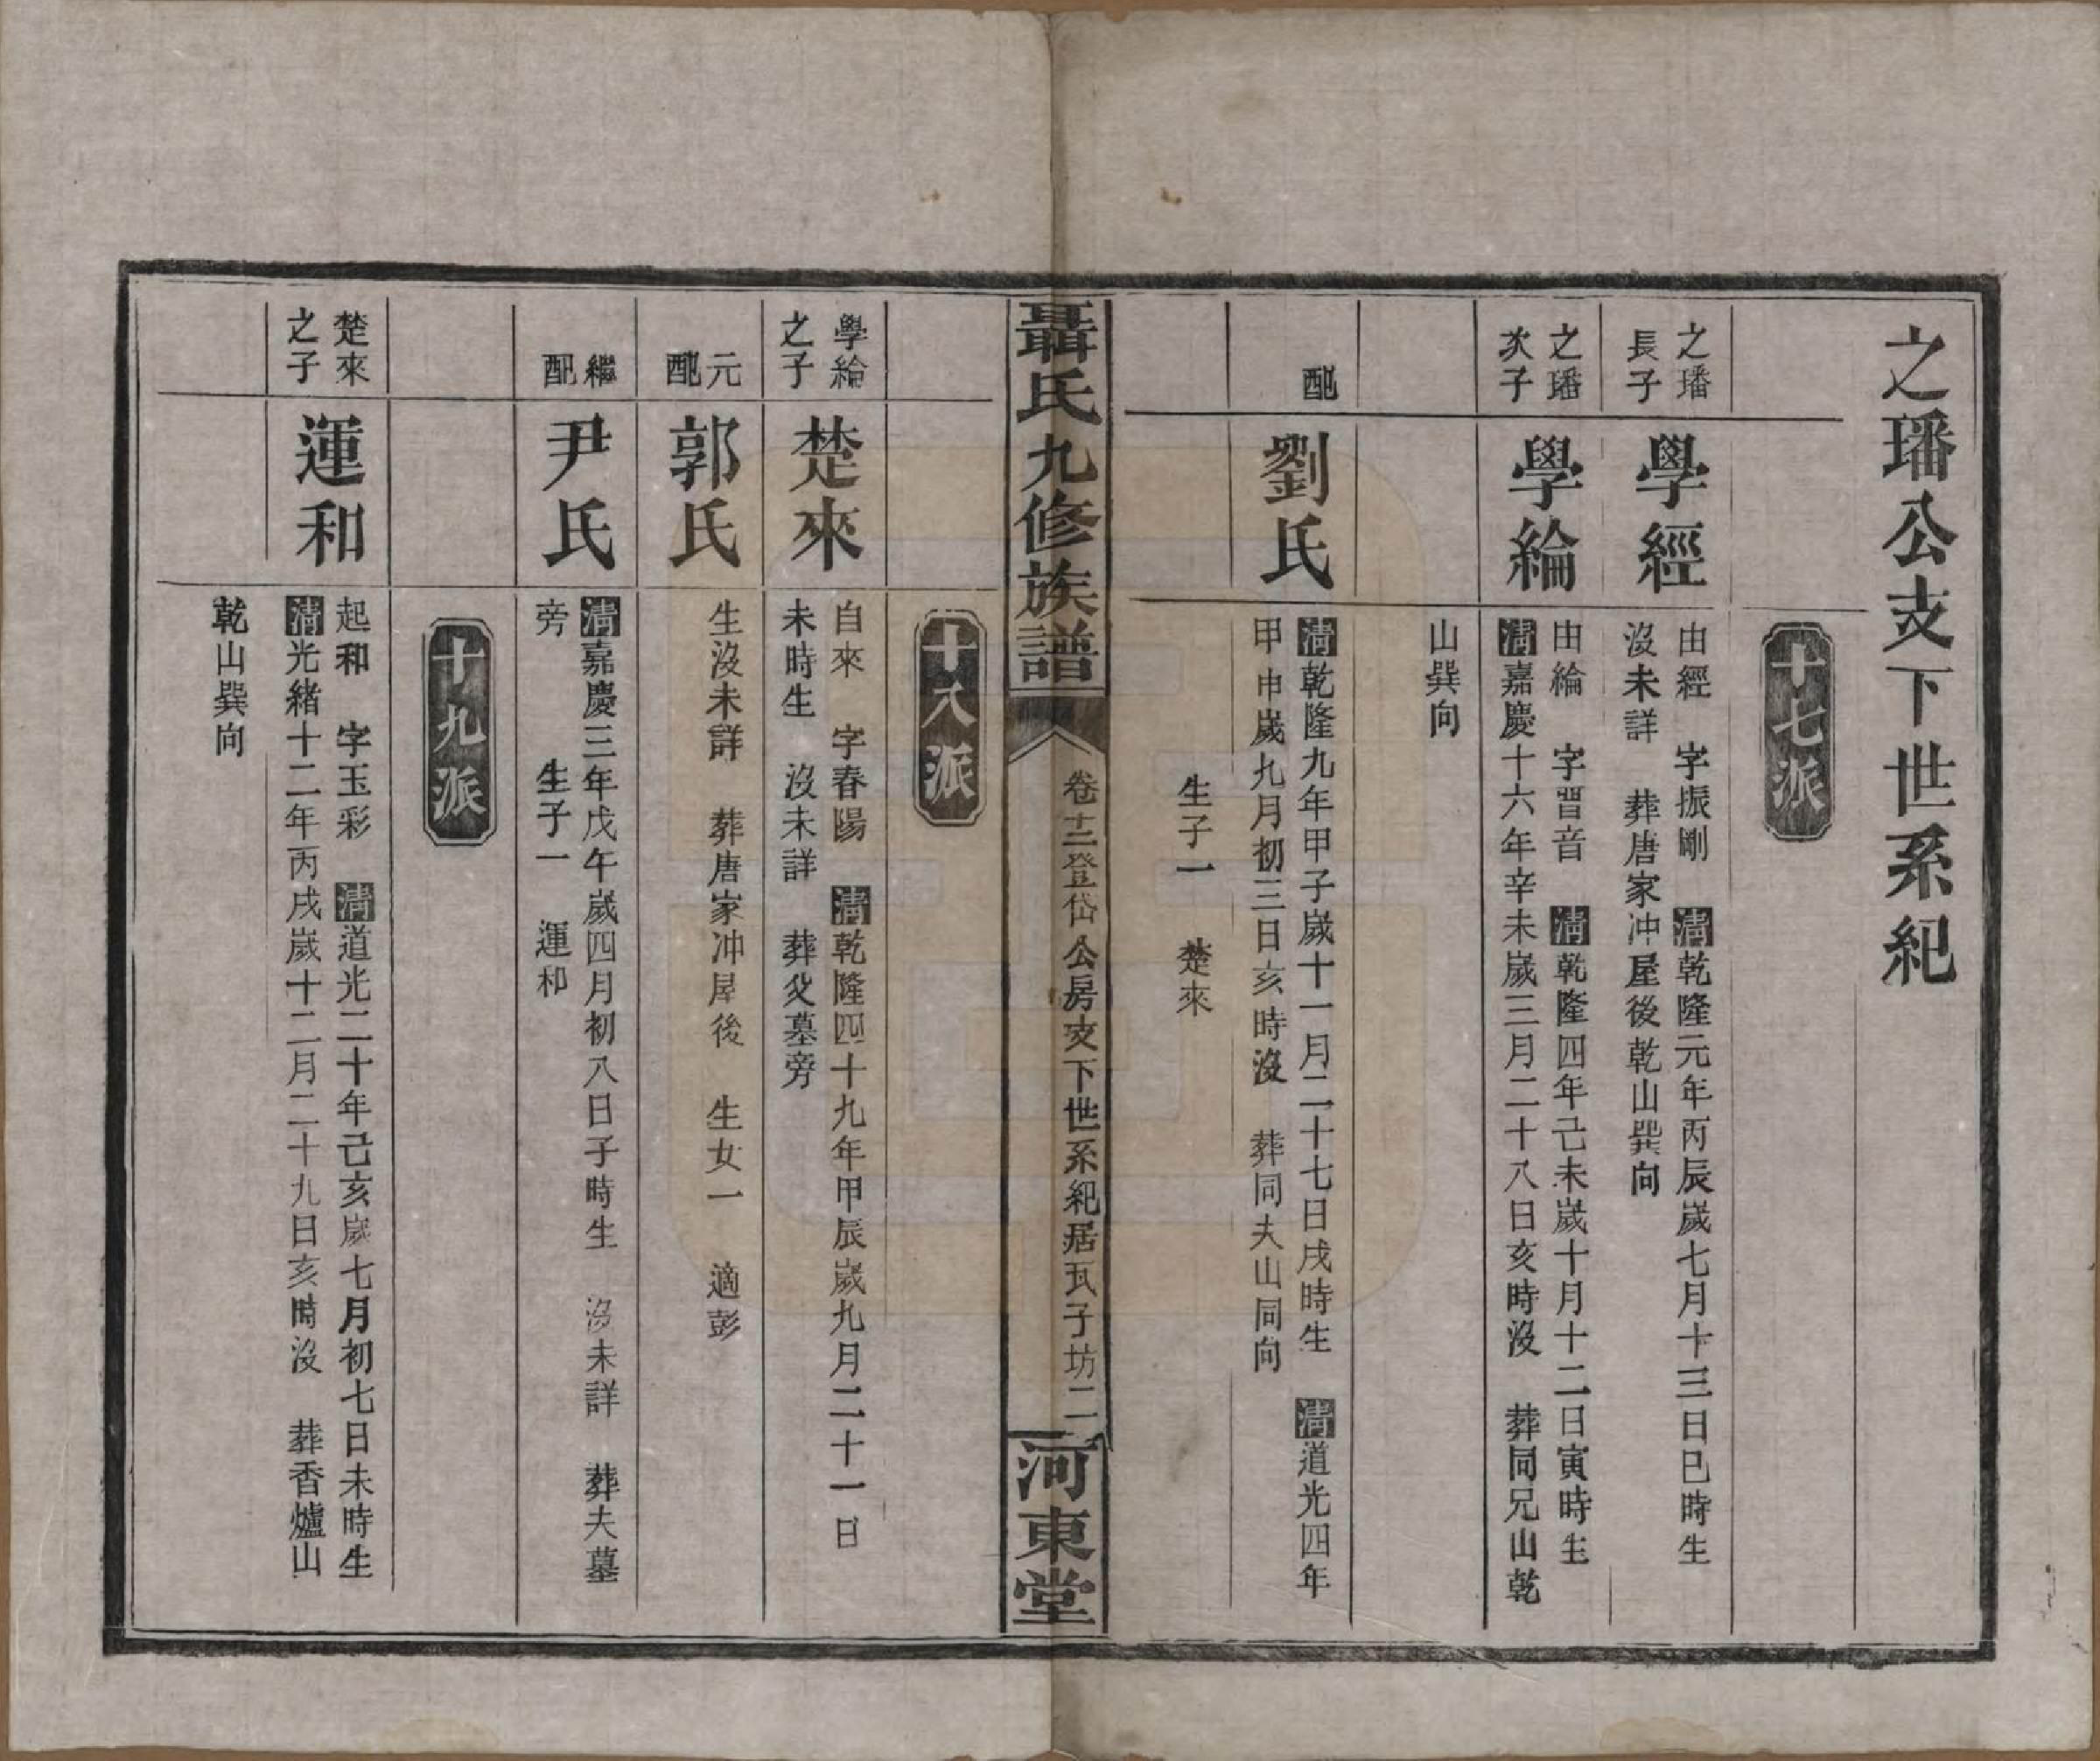 之璠公支下世系紀
十七派
之璠
長子
學經
由經　字振剛　清乾隆元年丙辰歲七月十三日巳時生
沒未詳　葬唐家冲屋後乾山巽向
之璠
次子
學綸
由綸　字習音　清乾隆四年己未歲十月十二日寅時生
清嘉慶十六年辛未歲三月二十八日亥時沒　葬同兄山乾
山巽向
配
劉氏
清乾隆九年甲子歲十一月二十七日戌時生　清道光四年
甲申歲九月初三日亥時沒　葬同夫山同向
生子一　楚來
聶氏九修族譜
卷十二登岱公房支下世系紀居瓦子坊二
河東堂
十八派
學綸
之子
楚來
自來　字春陽　清乾隆四十九年甲辰歲九月二十一日
未時生　沒未詳　葬父墓旁
元
配
郭氏
生沒未詳　葬唐家冲屋後　生女一　適彭
繼
配
尹氏
清嘉慶三年戊午歲四月初八日子時生　沒未詳　葬夫墓
旁　　　生子一　運和
十九派
楚來
之子
運和
起和　字玉彩　清道光二十年己亥歲七月初七日未時生
清光緒十二年丙戌歲十二月二十九日亥時沒　葬香爐山
乾山巽向